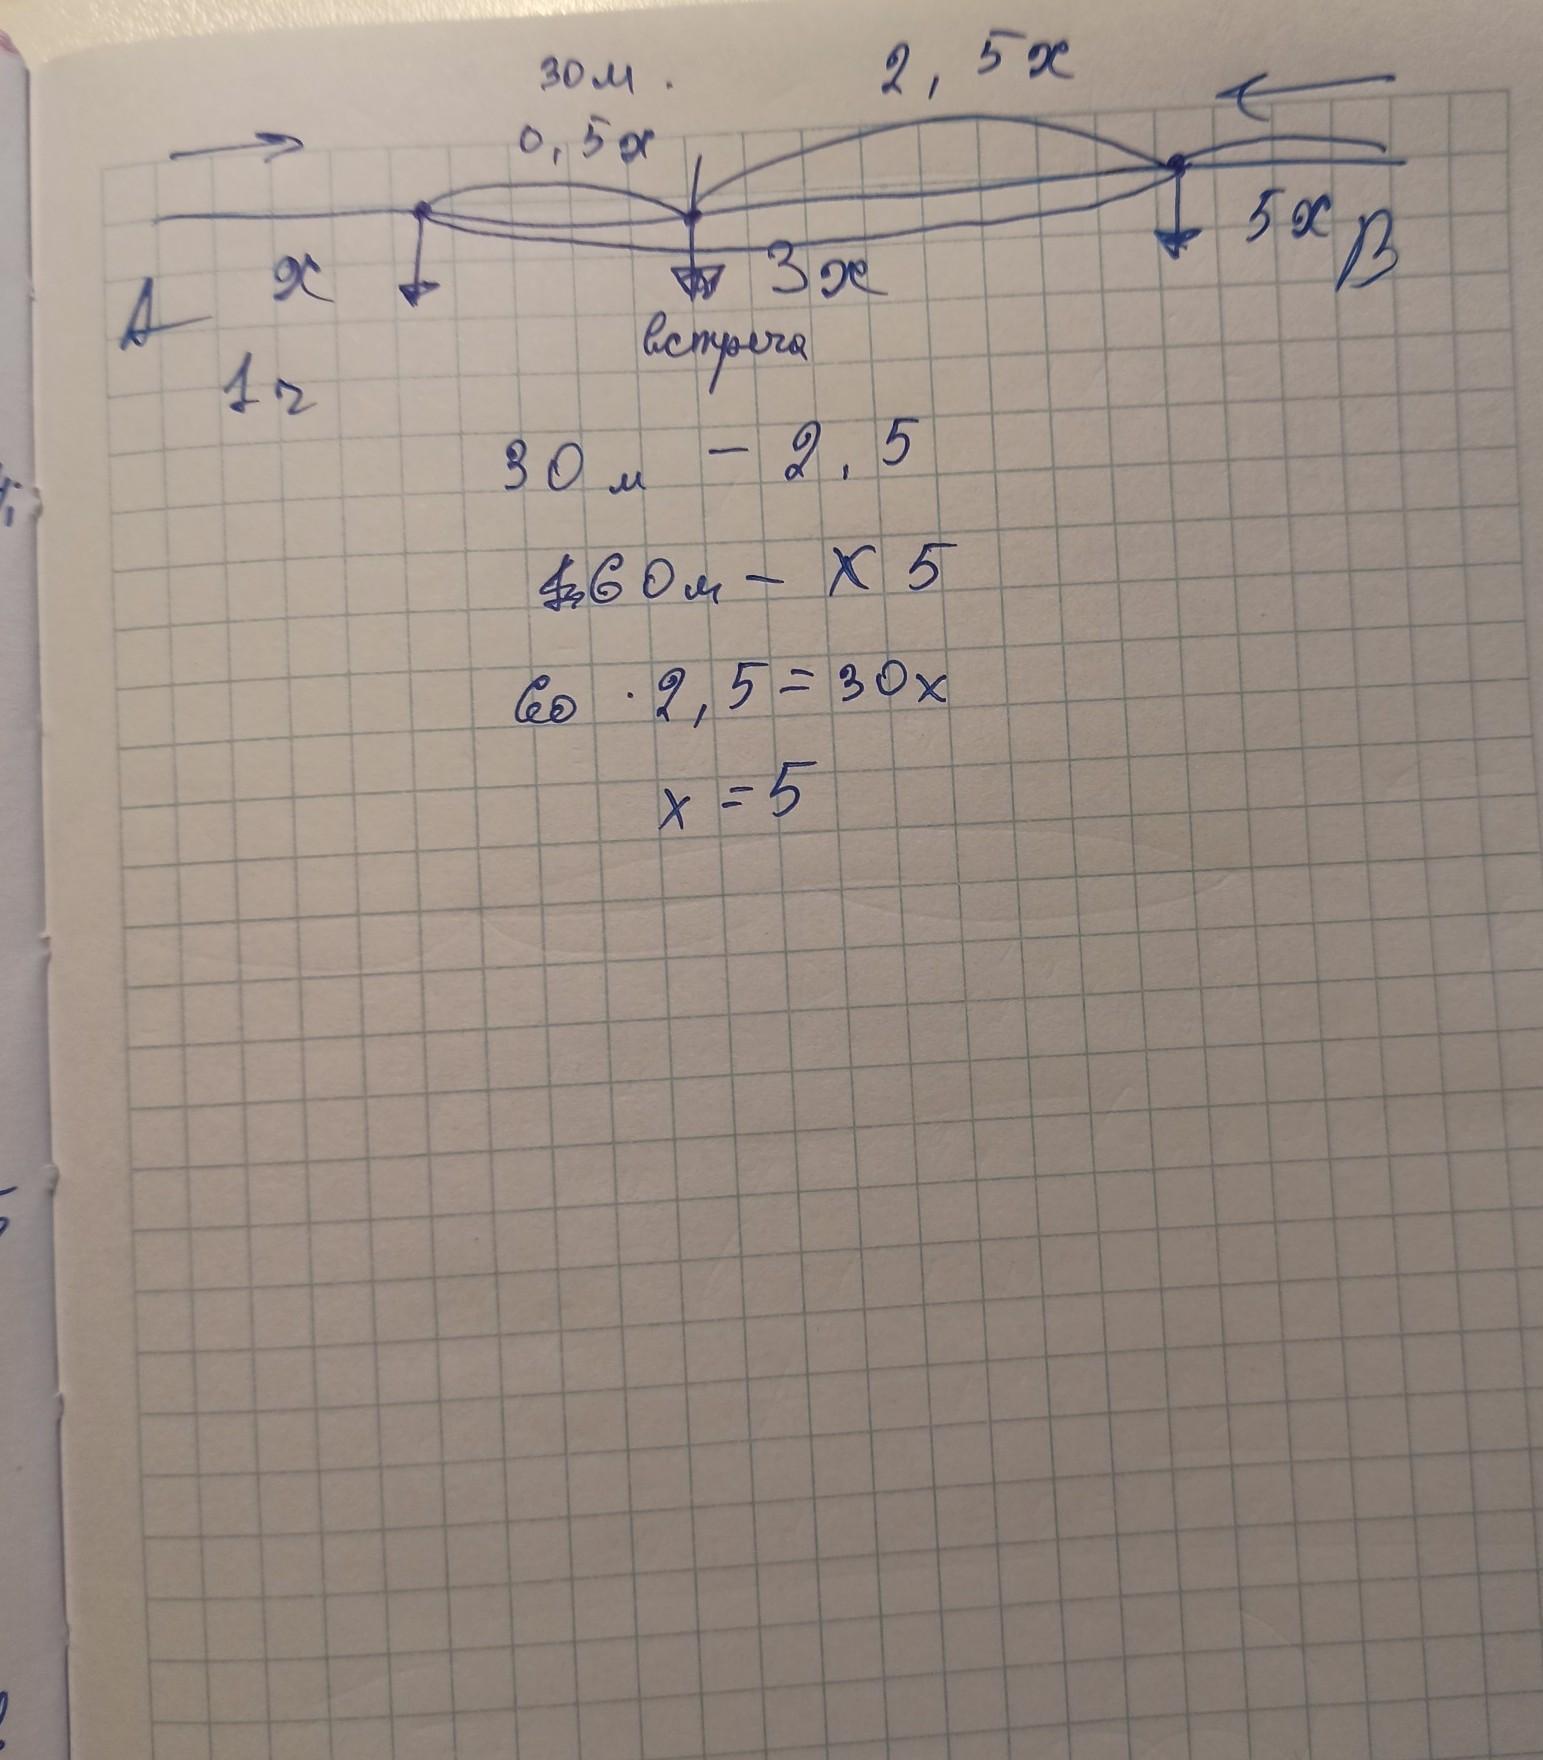 30м.
2,5x
0,5x
x
3x
5x
A
B
встреча
1ч
30м - 2,5
60м - x 5
60 · 2,5 = 30x
x = 5